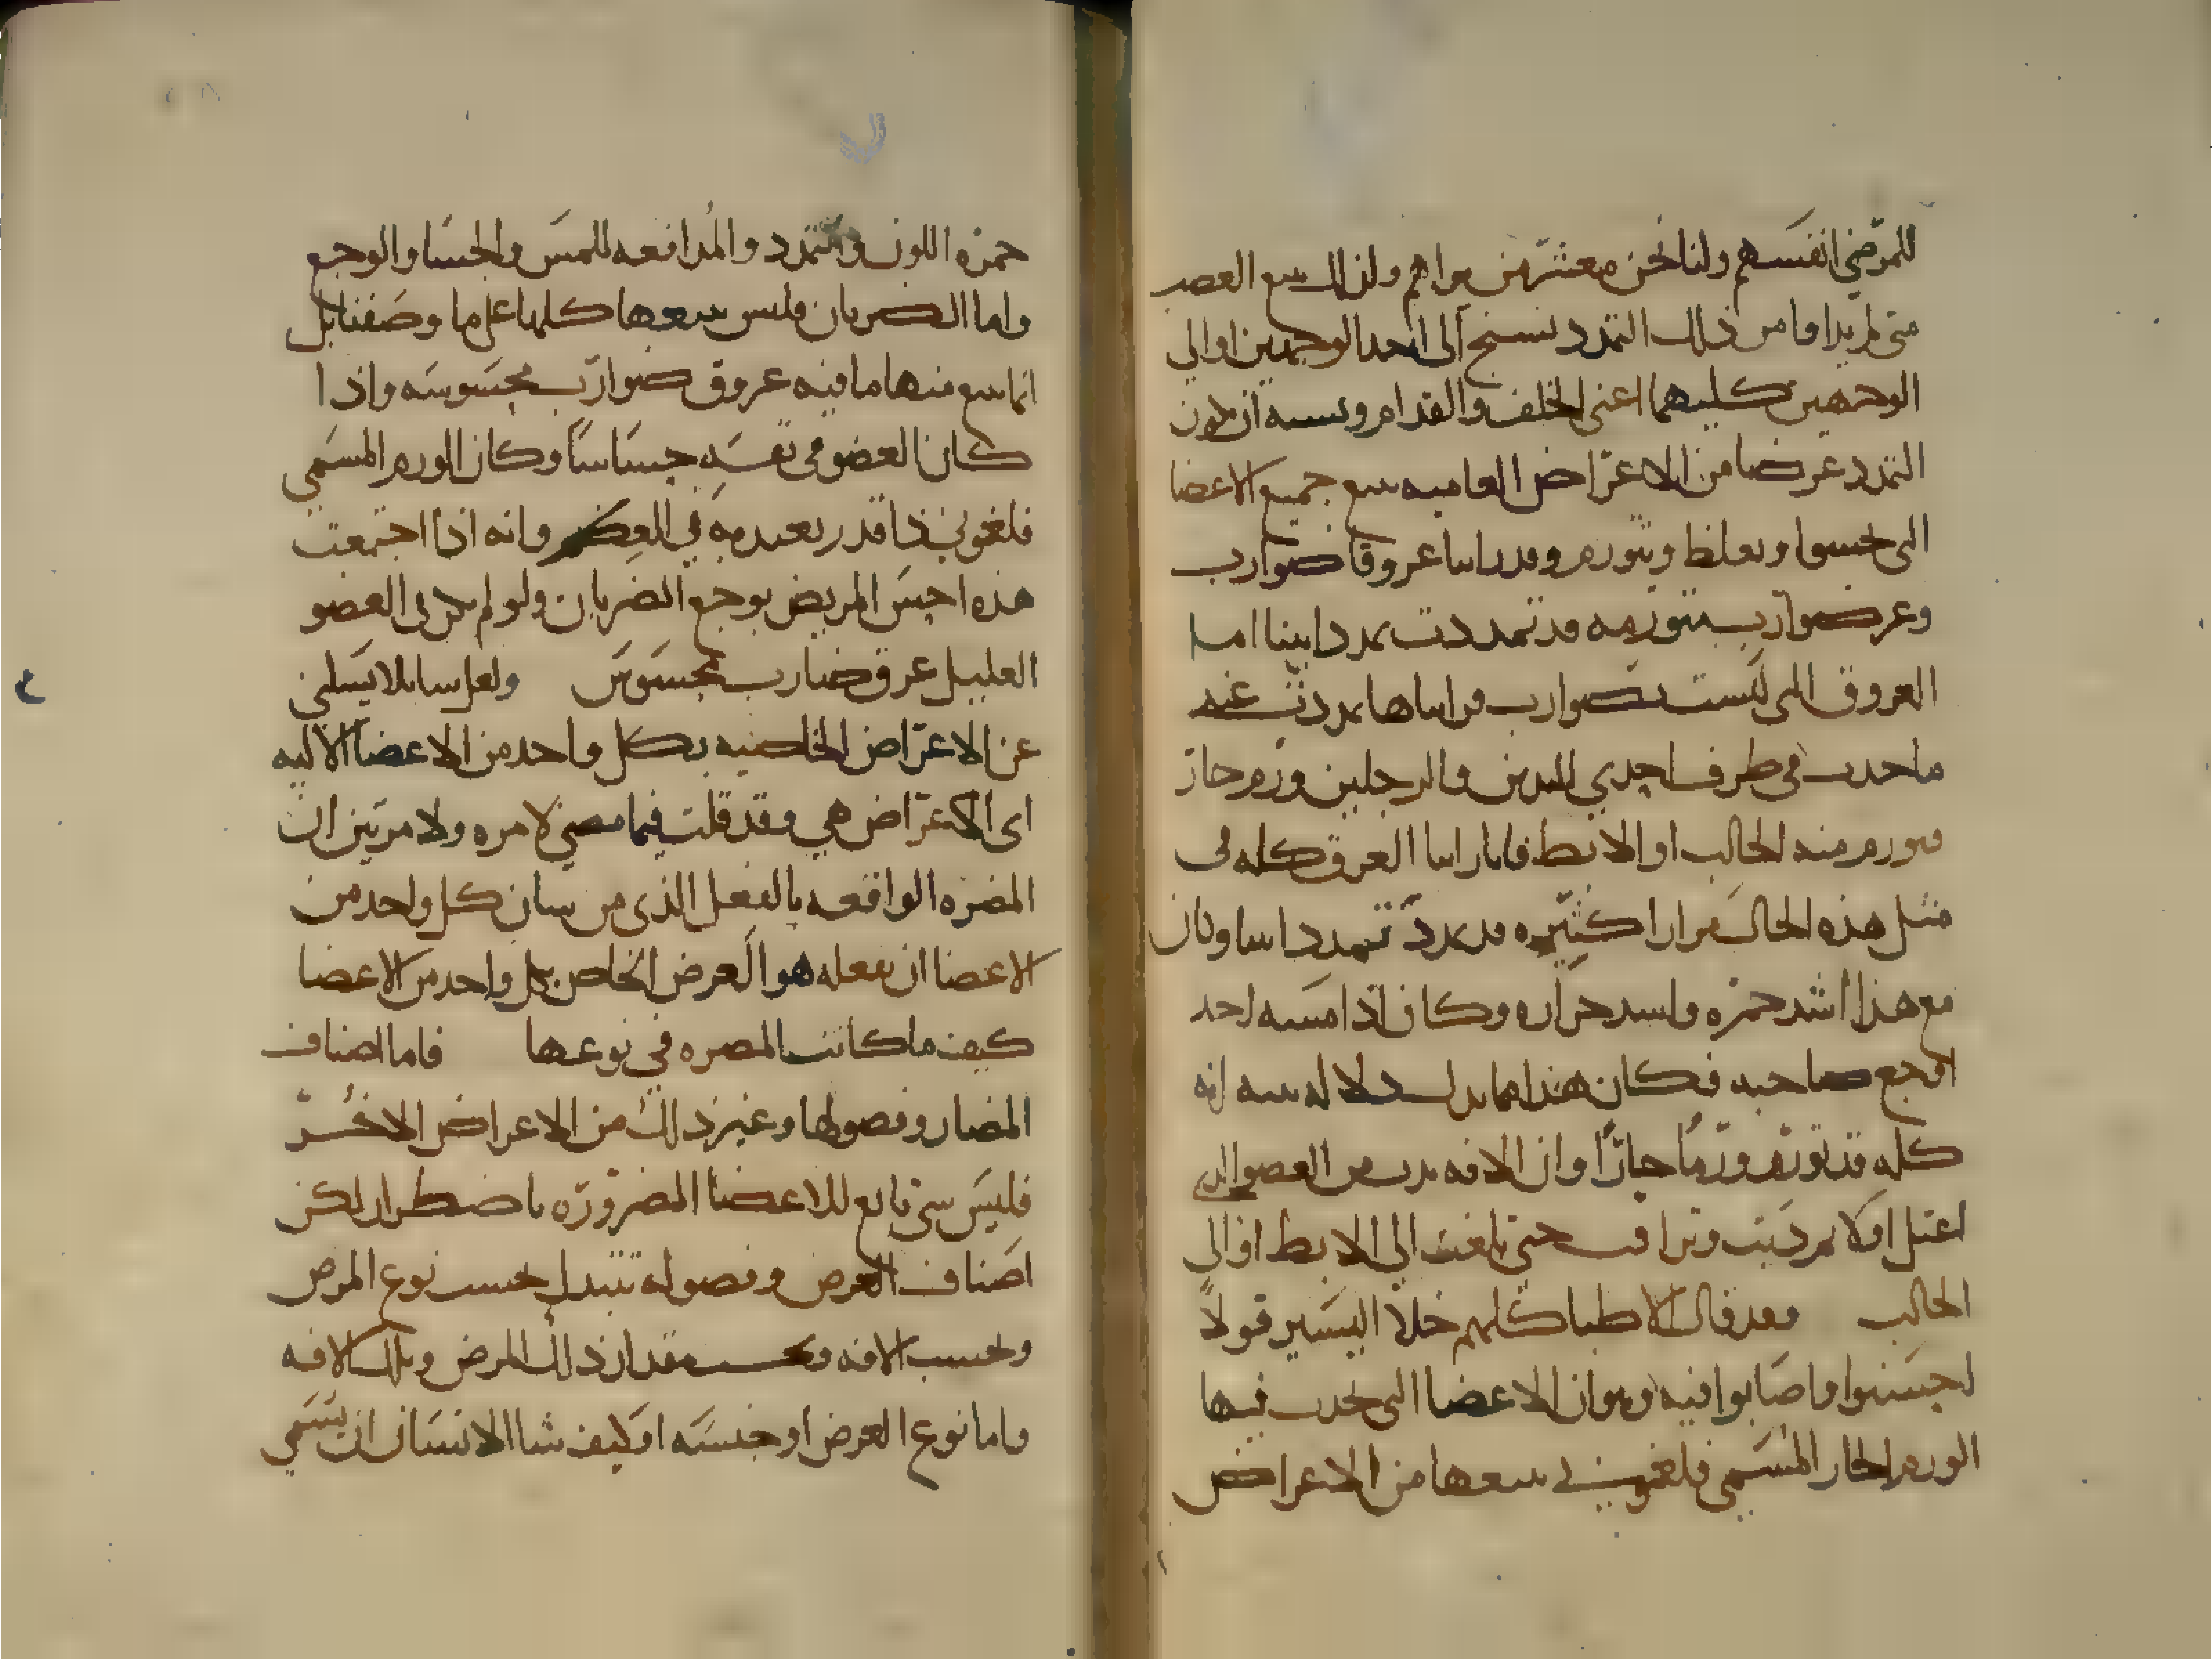 للمرضي انفسهم ولنا نحن معشر من يراهم ولذلك سع العصب
متى لم يدافا من ذلك التمدد تسنج الى احد الوجهين او الى
الوجهين كليهما اعنى الخلف والقدام ويسبه ان يكون
التمدد عرضا من الاعراض العاميه سع جميع الاعضا
التى تحسوا وتغلظ وتتورم وقد راينا عروقا ضوارب
وغير ضوارب متورمه قد تمددت تمددا بينا اما
العروق التى ليست بضوارب فراىناها تمددت عند
ما حدث فى طرف احدي اليدين والرجلين ورم حار
فتورم منه الحالب او الابط فانا راينا العرق كله فى
مثل هذه الحال مرارا كثيره قد تمدد تمددا بينا وكان
مع هذا اشد حمره واشد حراره وكان اذا مسه احد
اوجع صاحبه فكان هذا مما يدل دلاله بينه انه
كله قد تورم ورما حارا وان الافه من العضو الذي
اعتل اولا تردت وتراقت حتى بلغت الى الابط او الى
الحالب وقد قال الاطبا كلهم خلا اليسير قولا
احسنوا واصابوا فيه وهو ان الاعضا التى يحدث فيها
الورم الحار المسمى فلغمونى يتبعها من الاعراض
حمره اللون والتمدد والمدافعه للمس والجسا والوجع
واما الضربان فليس يتبعها كلها على ما وصفنا بل
انما يتبع منها ما فيه عروق ضوارب محسوسه واذا
كان العضو فى نفسه حساسا وكان الورم المسمى
فلغمونى ذا قدر يعتد به في العظم وانه اذا اجتمعت
هذه احس المريض بوجع الضربان ولو لم يكن فى العضو
العليل عرق ضارب محسوس ولعل سايلا يسلنى
عن الاعراض الخاصيه بكل واحد من الاعضا الاليه
اى الاعراض هي وقد قلت فيما مضي لا مره ولا مرتين ان
المضره الواقعه بالفعل الذى من شان كل واحد من
الاعضا ان يفعله هو العرض الخاص بكل واحد من الاعضا
كيف ما كانت المضره في نوعها فاما اصناف
المضار وفصولها وغير ذلك من الاعراض الاخر
فليس شى تابع للاعضا الضروره باضطرار لكن
اصناف العرض وفصوله تتبدل بحسب نوع المرض
وبحسب الافه وبحسب مقدار ذلك المرض وتلك الافه
واما نوع العرض او جنسه او كيف شا الانسان ان يسمى